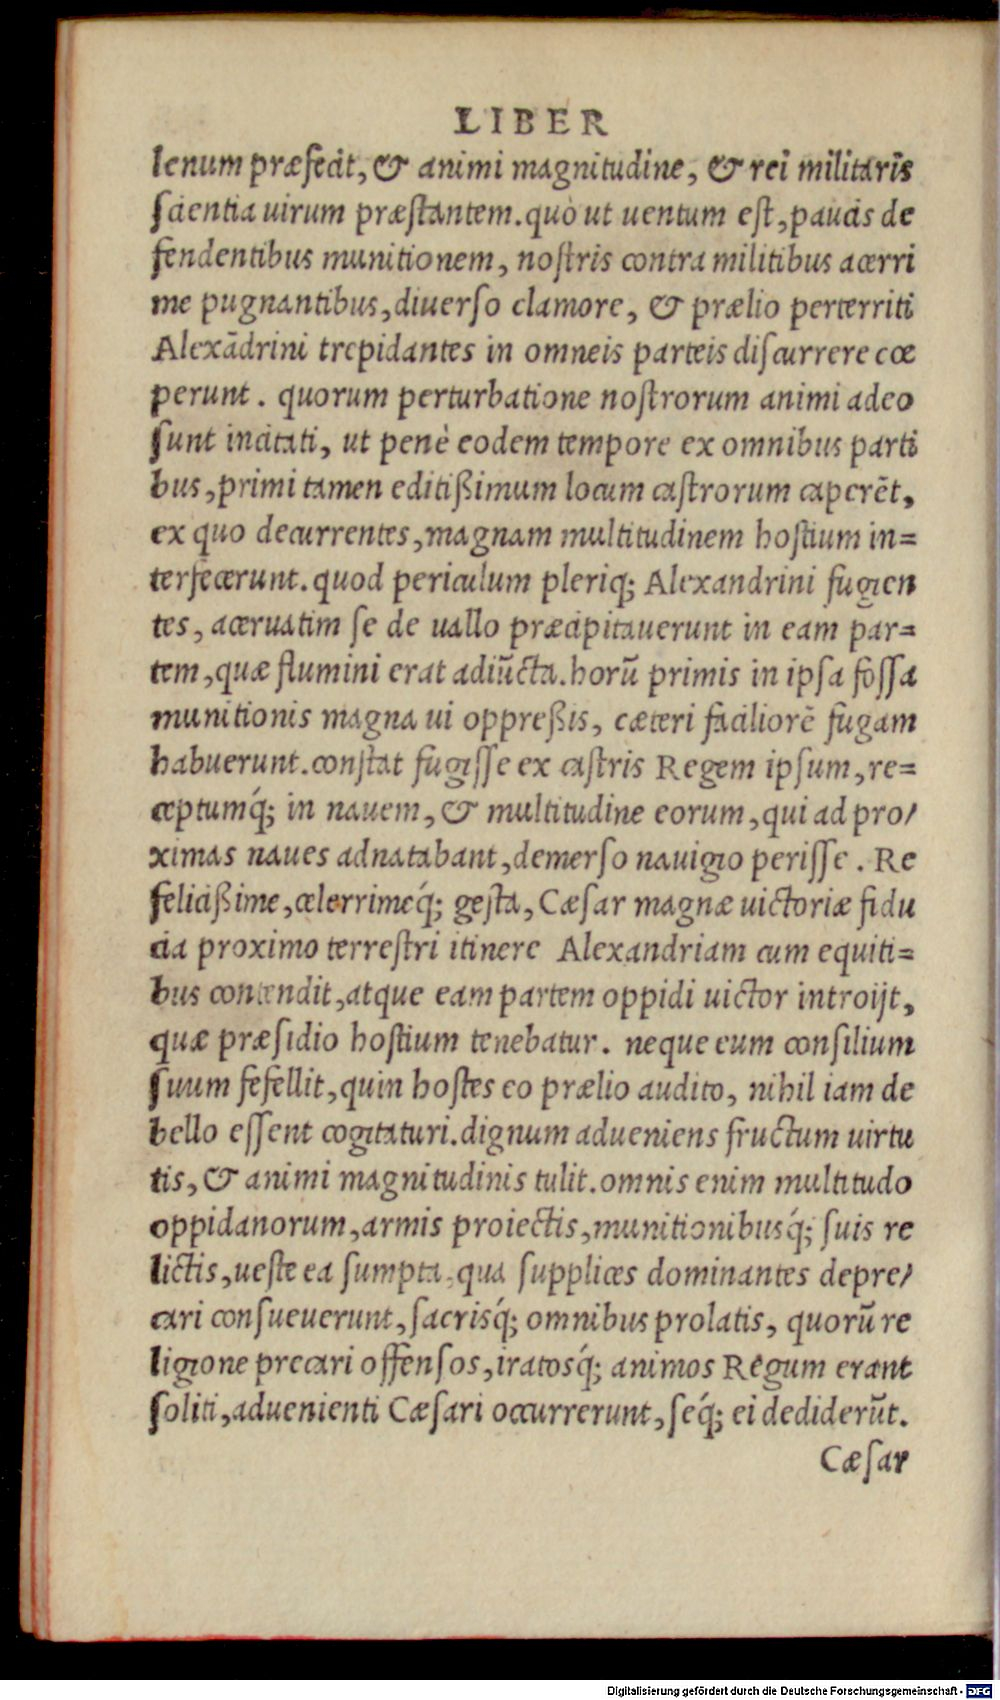 LIBER
lenum præfecit, & animi magnitudine, & rei militaris
ſcientia uirum præſtantem. quò ut uentum eſt, paucis de
fendentibus munitionem, noſtris contra militibus acerri
me pugnantibus, diuerſo clamore, & prælio perterriti
Alexādrini trepidantes in omneis parteis diſcurrere cœ
perunt. quorum perturbatione noſtrorum animi adeo
ſunt incitati, ut penè eodem tempore ex omnibus parti
bus, primi tamen editißimum locum caſtrorum caperēt,
ex quo decurrentes, magnam multitudinem hoſtium in=
terfecerunt. quod periculum pleriq; Alexandrini fugien
tes, aceruatim ſe de uallo præcipitauerunt in eam par=
tem, quæ flumini erat adiūcta. horū primis in ipſa foſſa
munitionis magna ui oppreßis, cæteri faciliorē fugam
habuerunt. conſtat fugiſſe ex caſtris Regem ipſum, re=
ceptumq́; in nauem, & multitudine eorum, qui ad pro/
ximas naues adnatabant, demerſo nauigio periſſe. Re
felicißime, celerrimeq́; geſta, Cæſar magnæ uictoriæ fidu
cia proximo terreſtri itinere Alexandriam cum equiti=
bus contendit, atque eam partem oppidi uictor introijt,
quæ præſidio hoſtium tenebatur. neque eum conſilium
ſuum fefellit, quin hoſtes eo prælio audito, nihil iam de
bello eſſent cogitaturi. dignum adueniens fructum uirtu
tis, & animi magnitudinis tulit. omnis enim multitudo
oppidanorum, armis proiectis, munitionibusq́; ſuis re
lictis, ueſte ea ſumpta, qua ſupplices dominantes depre/
cari conſueuerunt, ſacrisq́; omnibus prolatis, quorū re
ligione precari offenſos, iratosq́; animos Regum erant
ſoliti, aduenienti Cæſari occurrerunt, ſeq́; ei dediderūt.
Cæſar
Digitalisierung gefördert durch die Deutsche Forschungsgemeinschaft - DFG